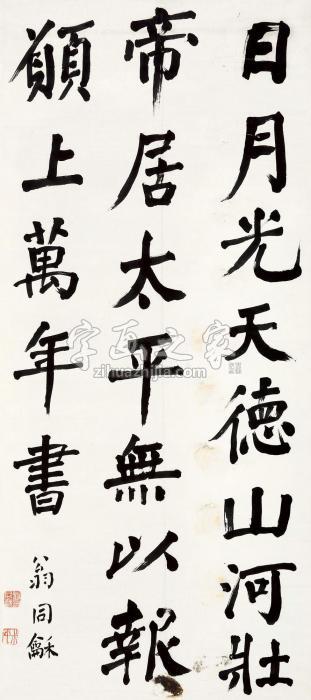 日月光天德山河壯
帝居太平無以報
願上萬年書
翁同龢
字画之家
zihuazhijia.com